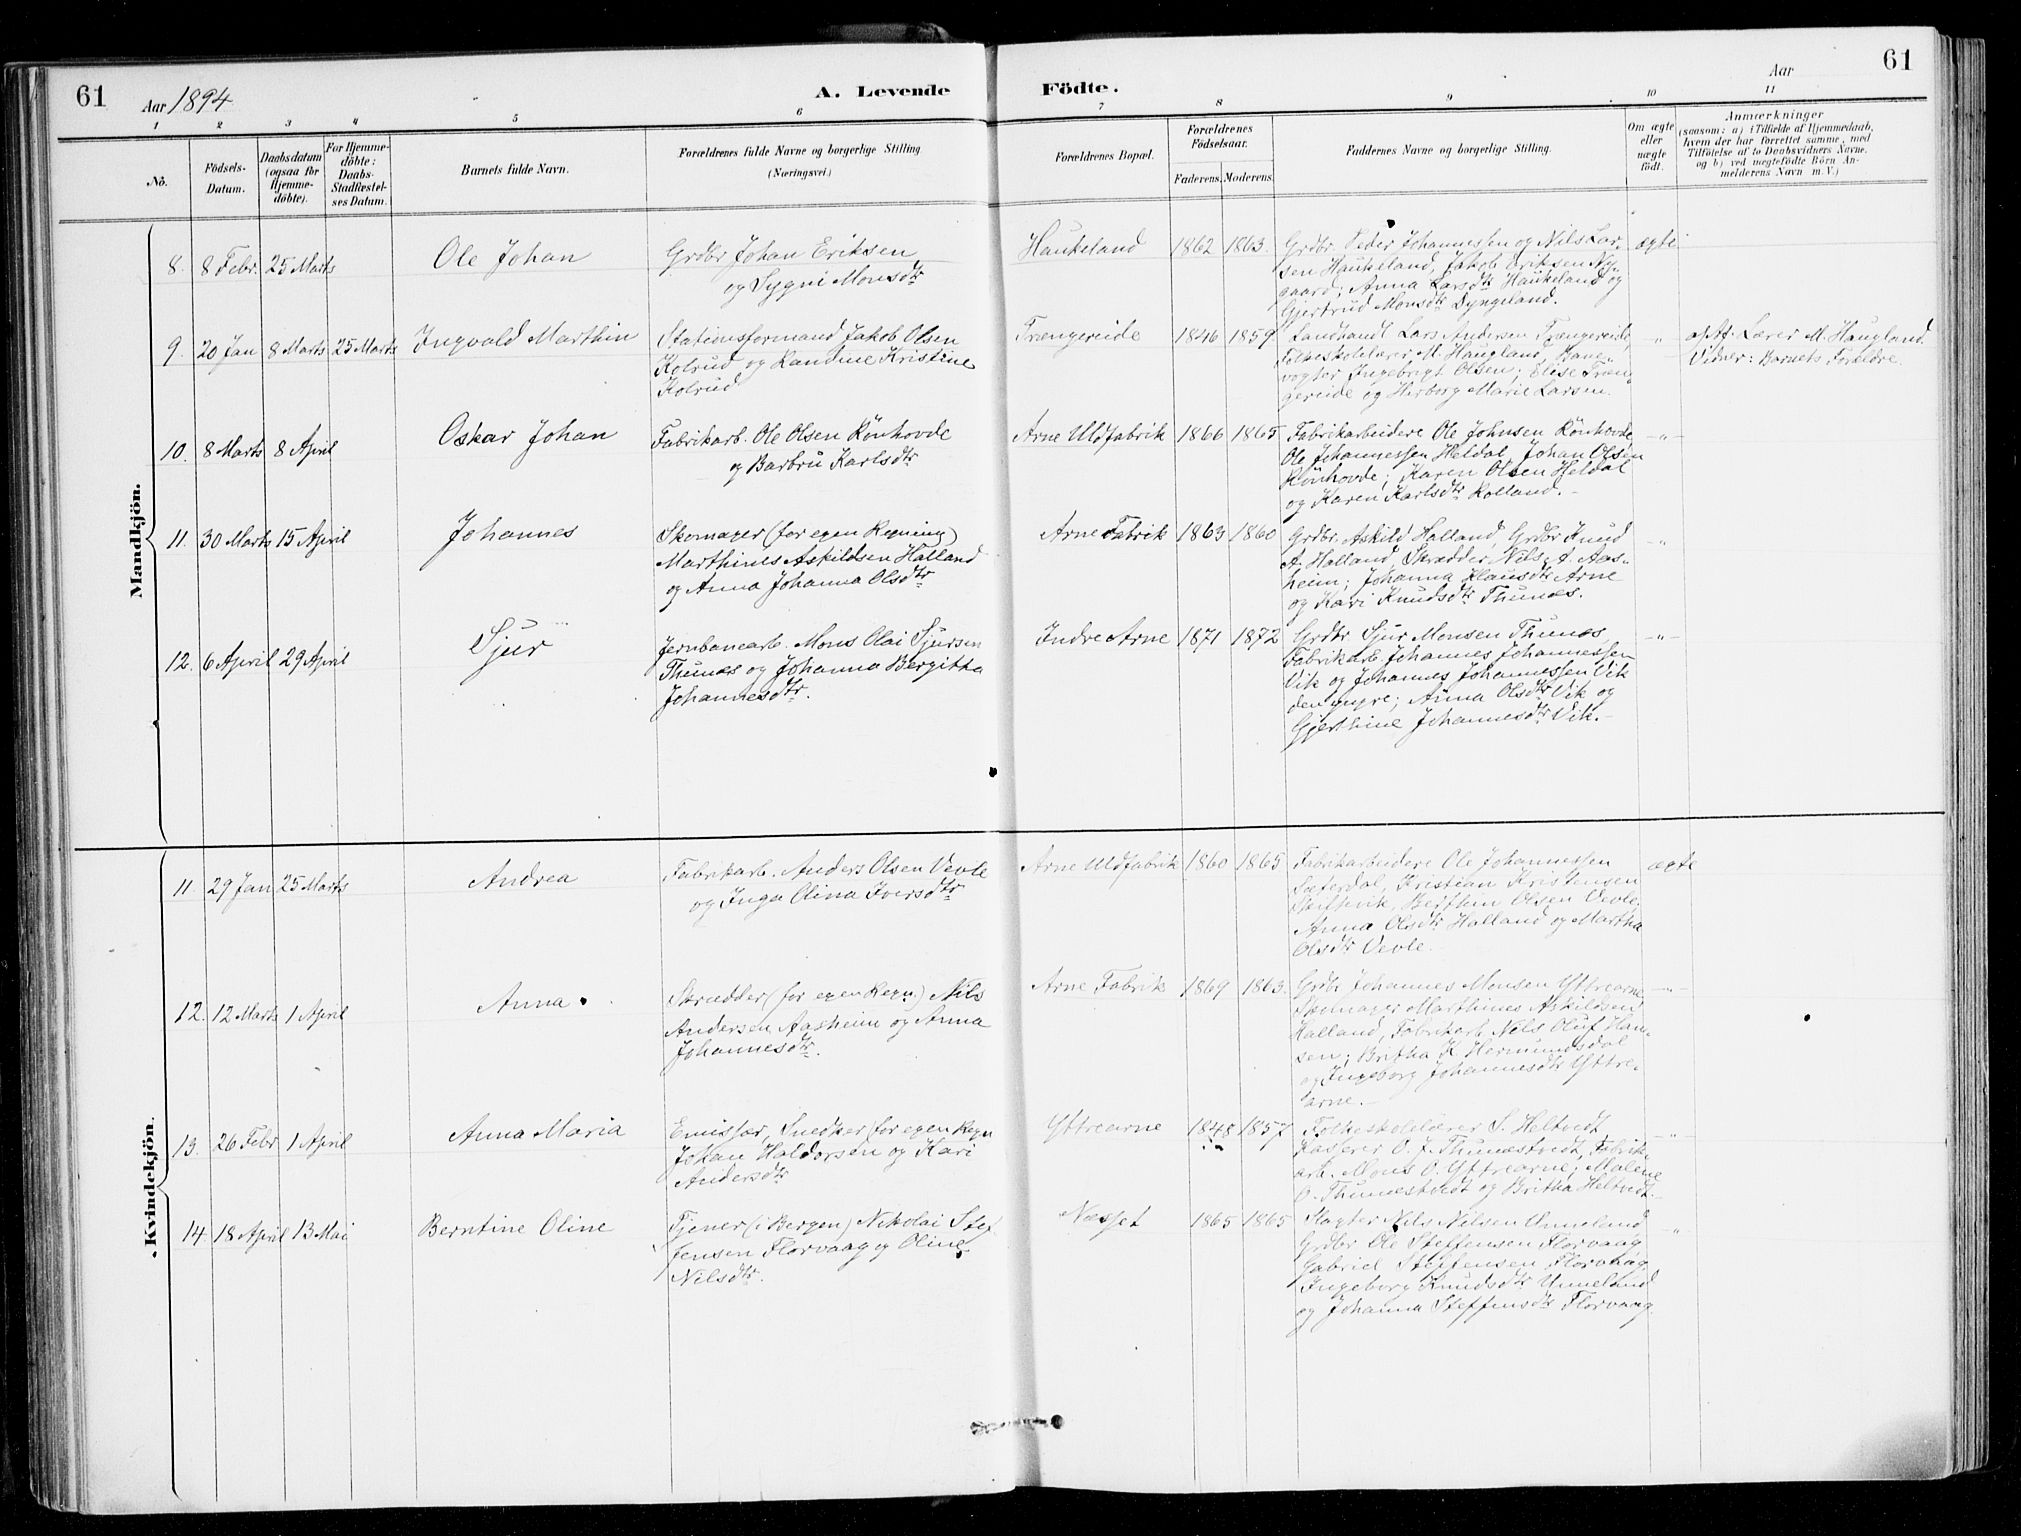 61
Aar 1894
A. Levende Födte.
Aar
61
1 2 3 4 5 6 7 8 9 10 11
No.
Födsels-Datum.
Daabsdatum (ogsaa for Hjemmedöbte).
For Hjemmedöbte: Daabs-Stadfæstelses Datum.
Barnets fulde Navn.
Forældrenes fulde Navne og borgerlige Stilling
(Næringsvei.)
Forældrenes Bopæl.
Forældrenes Födselsaar.
Faderens. Moderens.
Faddernes Navne og borgerlige Stilling.
Om ægte eller uægte födt.
Anmærkninger
(saasom: a) i Tilfælde af Hjemmedaab,
hvem der har forrettet samme, med
Tilföielse af to Daabsvidners Navne.
og b) ved uægtefödte Börn An-
melderens Navn m. V.)
Mandkjön.
8. 8 Febr. 25 Marts
Ole Johan
Grdbr Johan Eriksen
og Sygni Monsdtr
Haukeland 1862 1863.
Grdbr. Peder Johannessen og Nils Lar-
sen Haukeland, Jakob Eriksen Ny-
gaard; Anna Larsdtr Haukeland og
Gjertrud Monsdtr Dyngeland.
ægte
9. 20 Jan 8 Marts 25 Marts
Ingvald Marthin
Stationsformand Jakob Olsen
Kolrud og Randine Kristine
Kolrud
Trængereide 1846 1859
Landhandl Lars Andersen Trængereide
Folkeskolelærer M. Haugland, Bane-
vogter Ingebrigt Olsen; Elise Træn-
gereide og Herborg Marie Larsen.
-"-
a) Af Lærer M. Haugland.
Vidner: Barnets Forældre.
10. 8 Marts 8 April
Oskar Johan
Fabrikarb. Ole Olsen Rönhovde
og Barbru Karlsdtr
Arne Uldfabrik 1866 1865
Fabrikarbeidere Ole Johnsen Rönhovde,
Ole Johannessen Heldal, Johan Olsen
Rönhovde; Karen Olsen Heldal
og Karen Karlsdtr Rolland.-
-"-
11. 30 Marts 15 April
Johannes
Skomager (for egen Regning)
Marthines Askildsen Halland
og Anna Johanna Olsdtr
Arne Fabrik 1863 1860
Grdbr. Askild Halland, Grdbr Knud
A. Halland, Skrædder Nils A. Aas-
heim; Johanna Klausdtr Arne
og Kari Knudsdtr Thunes.
-"-
12. 6 April 29 April
Sjur
Jernbanearb. Mons Olai Sjursen
Thunes og Johanna Bergitha
Johannesdtr.
Indre Arne 1871 1872
Grdbr Sjur Monsen Thunes,
Fabrikarb. Johannes Johannessen
Vik og Johannes Johannessen Vik
den yngre; Anna Olsdtr Vik og
Gjerthine Johannesdtr Vik.-
-"-
Kvindekjön.
11. 29 Jan 25 Marts
Andrea
Fabrikarb. Anders Olsen Vevle
og Inga Olina Iversdtr
Arne Uldfabrik 1860 1865
Fabrikarbeidere Ole Johannessen
Sæterdal, Kristian Kristensen
Skiftevik, Berthin Olsen Vevle,
Anna Olsdtr Halland og Martha
Olsdtr Vevle.
ægte
12. 12 Marts 1 April
Anna
Skrædder (for egen Regn.) Nils
Andersen Aasheim og Anna
Johannesdtr.
Arne Fabrik 1869 1863.
Grdbr Johannes Monsen Yttrearne,
Skomager Marthines Askildsen
Halland, Fabrikarb. Nils Oluf Han-
sen; Britha K. Hermundsdal
og Ingeborg Johannesdtr Yttre-
arne.-
-"-
13. 26 Febr 1 April
Anna Maria
Emissær, Snedker (for egen Regn
Johan Haldorsen og Kari
Andersdtr
Yttrearne 1848 1857
Folkeskolelærer S. Heltvedt,
Kasserer O. J. Thunestvedt, Fabrik-
arb. Mons O. Yttrearne; Malene
O. Thunestvedt og Britha Heltvedt.
-"-
14. 18 April 13 Mai
Berntine Oline
Tjener (i Bergen) Nikolai Stef
fensen Florvaag og Oline
Nilsdtr.
Næsset 1865 1865
Slagter Nils Nilsen Unneland
Grdbr Ole Steffensen Florvaag
Gabriel Steffensen Florvaag
Ingeborg Knudsdtr Unneland
og Johanna Steffensdtr Florvaag
-"-